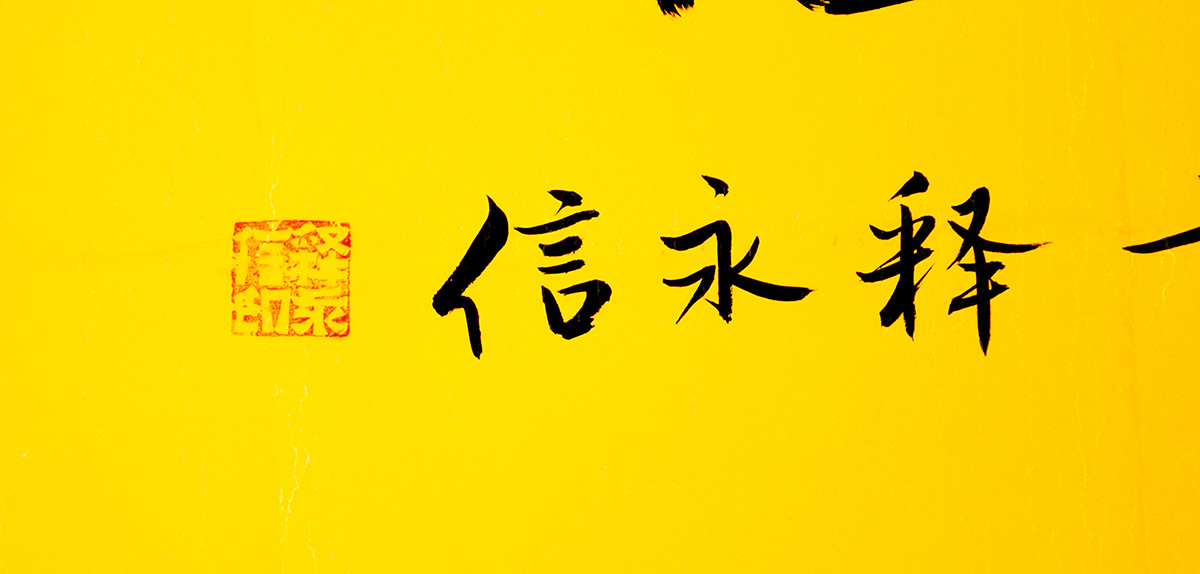 释永信
释永信印